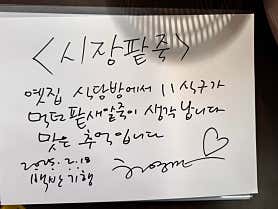 <시장팥죽>
옛집 식당방에서 11식구가
먹던 팥새알죽이 생각납니다
맞은 추억입니다
2025.2.18
백반기행